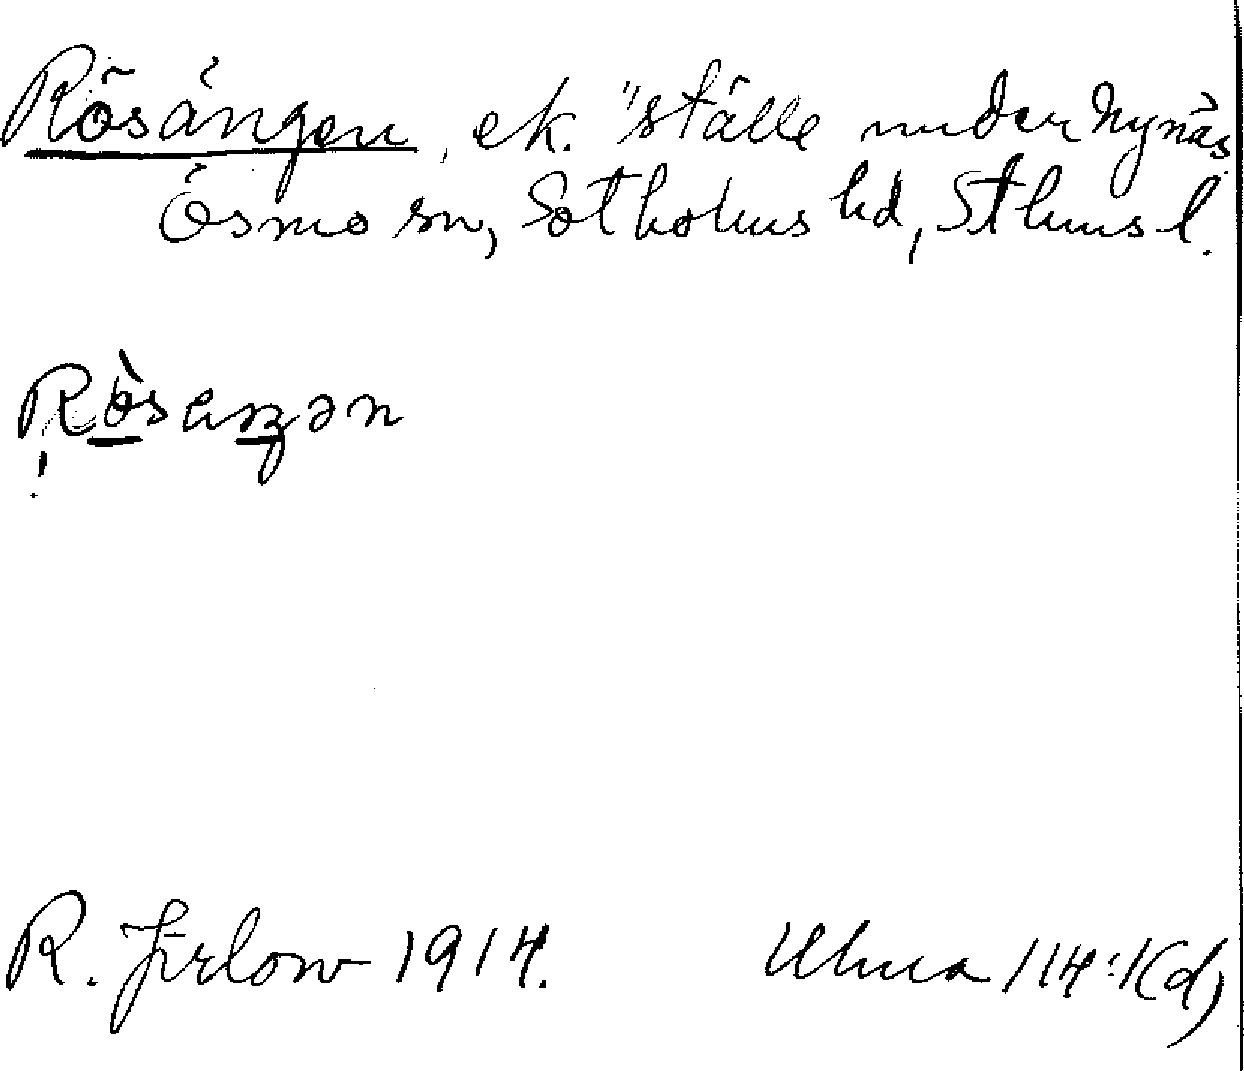 Rösängen, ek. "ställe under Nynäs.
Ösmo sn, Sotholms hd, Sthms l.
Rösaŋən
R. Jirlow 1914. Ulma 114:1(d)